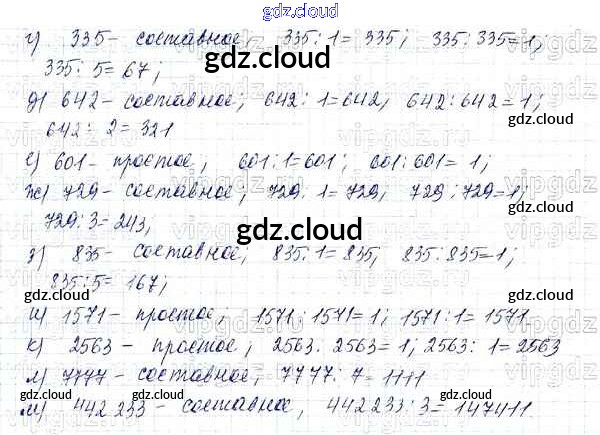 gdz.cloud
г) 335 - составное, 335 : 1 = 335; 335 : 335 = 1;
gdz.cloud
335 : 5 = 67;
д) 642 - составное; 642 : 1 = 642, 642 : 642 = 1;
gdz.cloud
642 : 2 = 321
е) 601 - простое, 601 : 1 = 601; 601 : 601 = 1;
ж) 729 - составное, 729 : 1 = 729, 729 : 729 = 1;
gdz.cloud
729 : 3 = 243;
gdz.cloud
з) 835 - составное, 835 : 1 = 835, 835 : 835 = 1;
835 : 5 = 167;
gdz.cloud
gdz.cloud
и) 1571 - простое; 1571 : 1571 = 1; 1571 : 1 = 1571
к) 2563 - простое; 2563 : 2563 = 1; 2563 : 1 = 2563
л) 7777 - составное, 7777 : 7 = 1111
м) 442 233 - составное, 442 233 : 3 = 147411.
gdz.cloud
gdz.cloud